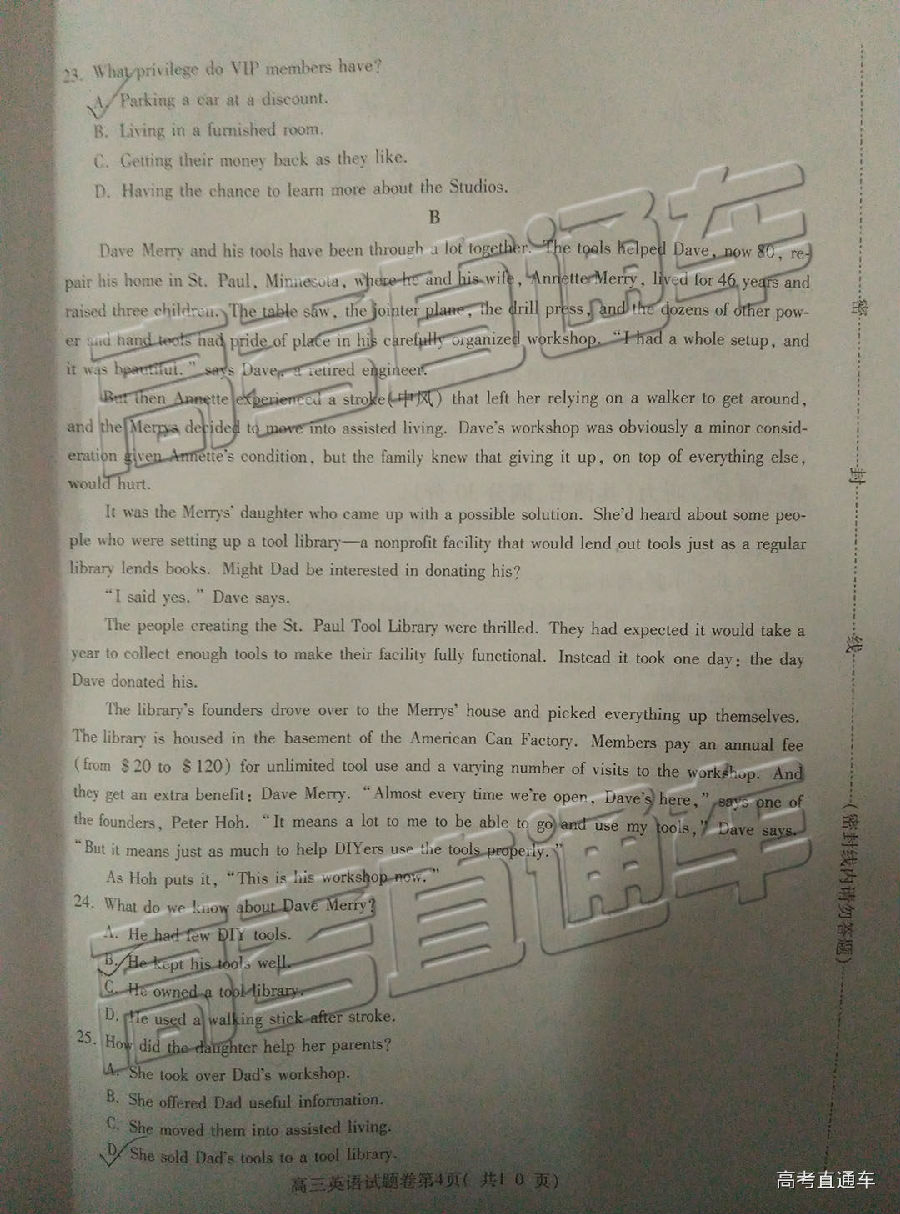 23. What privilege do VIP members have?
A. Parking a car at a discount.
B. Living in a furnished room.
C. Getting their money back as they like.
D. Having the chance to learn more about the Studios.
B
Dave Merry and his tools have been through a lot together. The tools helped Dave, now 80, re-
pair his home in St. Paul, Minnesota, where he and his wife, Annette Merry, lived for 46 years and
raised three children. The table saw, the jointer plane, the drill press, and the dozens of other pow-
er and hand tools had pride of place in his carefully organized workshop. "I had a whole setup, and
it was beautiful." says Dave, a retired engineer.
But then Annette experienced a stroke(中风) that left her relying on a walker to get around,
and the Merrys decided to move into assisted living. Dave's workshop was obviously a minor consid-
eration given Annette's condition, but the family knew that giving it up, on top of everything else,
would hurt.
It was the Merrys' daughter who came up with a possible solution. She'd heard about some peo-
ple who were setting up a tool library—a nonprofit facility that would lend out tools just as a regular
library lends books. Might Dad be interested in donating his?
"I said yes." Dave says.
The people creating the St. Paul Tool Library were thrilled. They had expected it would take a
year to collect enough tools to make their facility fully functional. Instead it took one day: the day
Dave donated his.
The library's founders drove over to the Merrys' house and picked everything up themselves.
The library is housed in the basement of the American Can Factory. Members pay an annual fee
(from $20 to $120) for unlimited tool use and a varying number of visits to the workshop. And
they get an extra benefit: Dave Merry. "Almost every time we're open, Dave's here," says one of
the founders, Peter Hoh. "It means a lot to me to be able to go and use my tools," Dave says.
"But it means just as much to help DIYers use the tools properly."
As Hoh puts it, "This is his workshop now."
24. What do we know about Dave Merry?
A. He had few DIY tools.
B. He kept his tools well.
C. He owned a tool library.
D. He used a walking stick after stroke.
25. How did the daughter help her parents?
A. She took over Dad's workshop.
B. She offered Dad useful information.
C. She moved them into assisted living.
D. She sold Dad's tools to a tool library.
高三英语试题卷第4页( 共10 页)
密
封
线
(密封线内请勿答题)
高考直通车
高考直通车
高考直通车